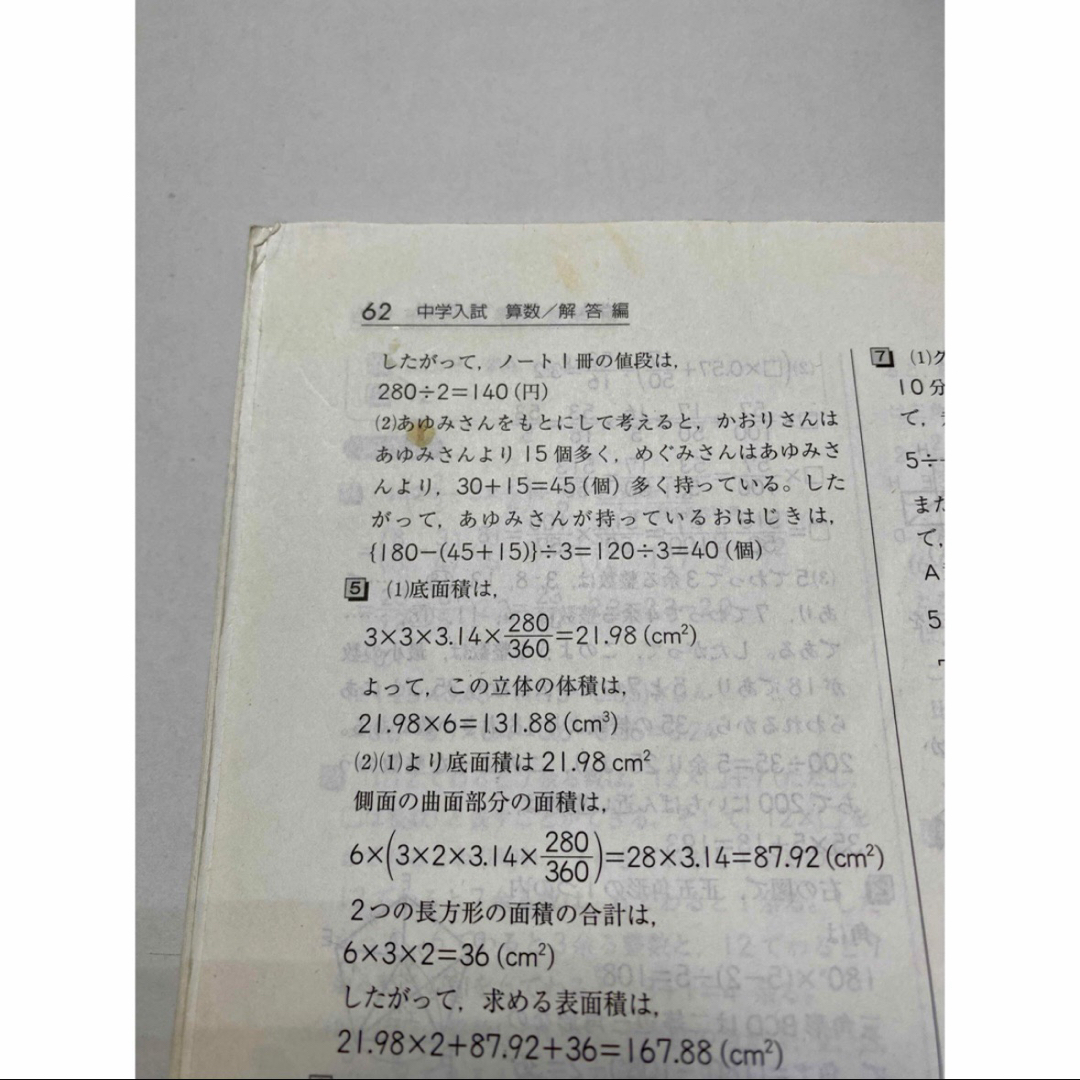 62 中学入試 算数／解答編
したがって，ノート1冊の値段は，
280÷2=140(円)
(2)あゆみさんをもとにして考えると，かおりさんは
あゆみさんより15個多く，めぐみさんはあゆみさ
んより，30+15=45(個)多く持っている。した
がって，あゆみさんが持っているおはじきは，
{180−(45+15)}÷3=120÷3=40(個)
5 (1)底面積は，
3×3×3.14×280/360=21.98(cm²)
よって，この立体の体積は，
21.98×6=131.88(cm³)
(2)(1)より底面積は21.98cm²
側面の曲面部分の面積は，
6×(3×2×3.14×280/360)=28×3.14=87.92(cm²)
2つの長方形の面積の合計は，
6×3×2=36(cm²)
したがって，求める表面積は，
21.98×2+87.92+36=167.88(cm²)
7 (1)
10分
て，
5÷
また
て，
A
5